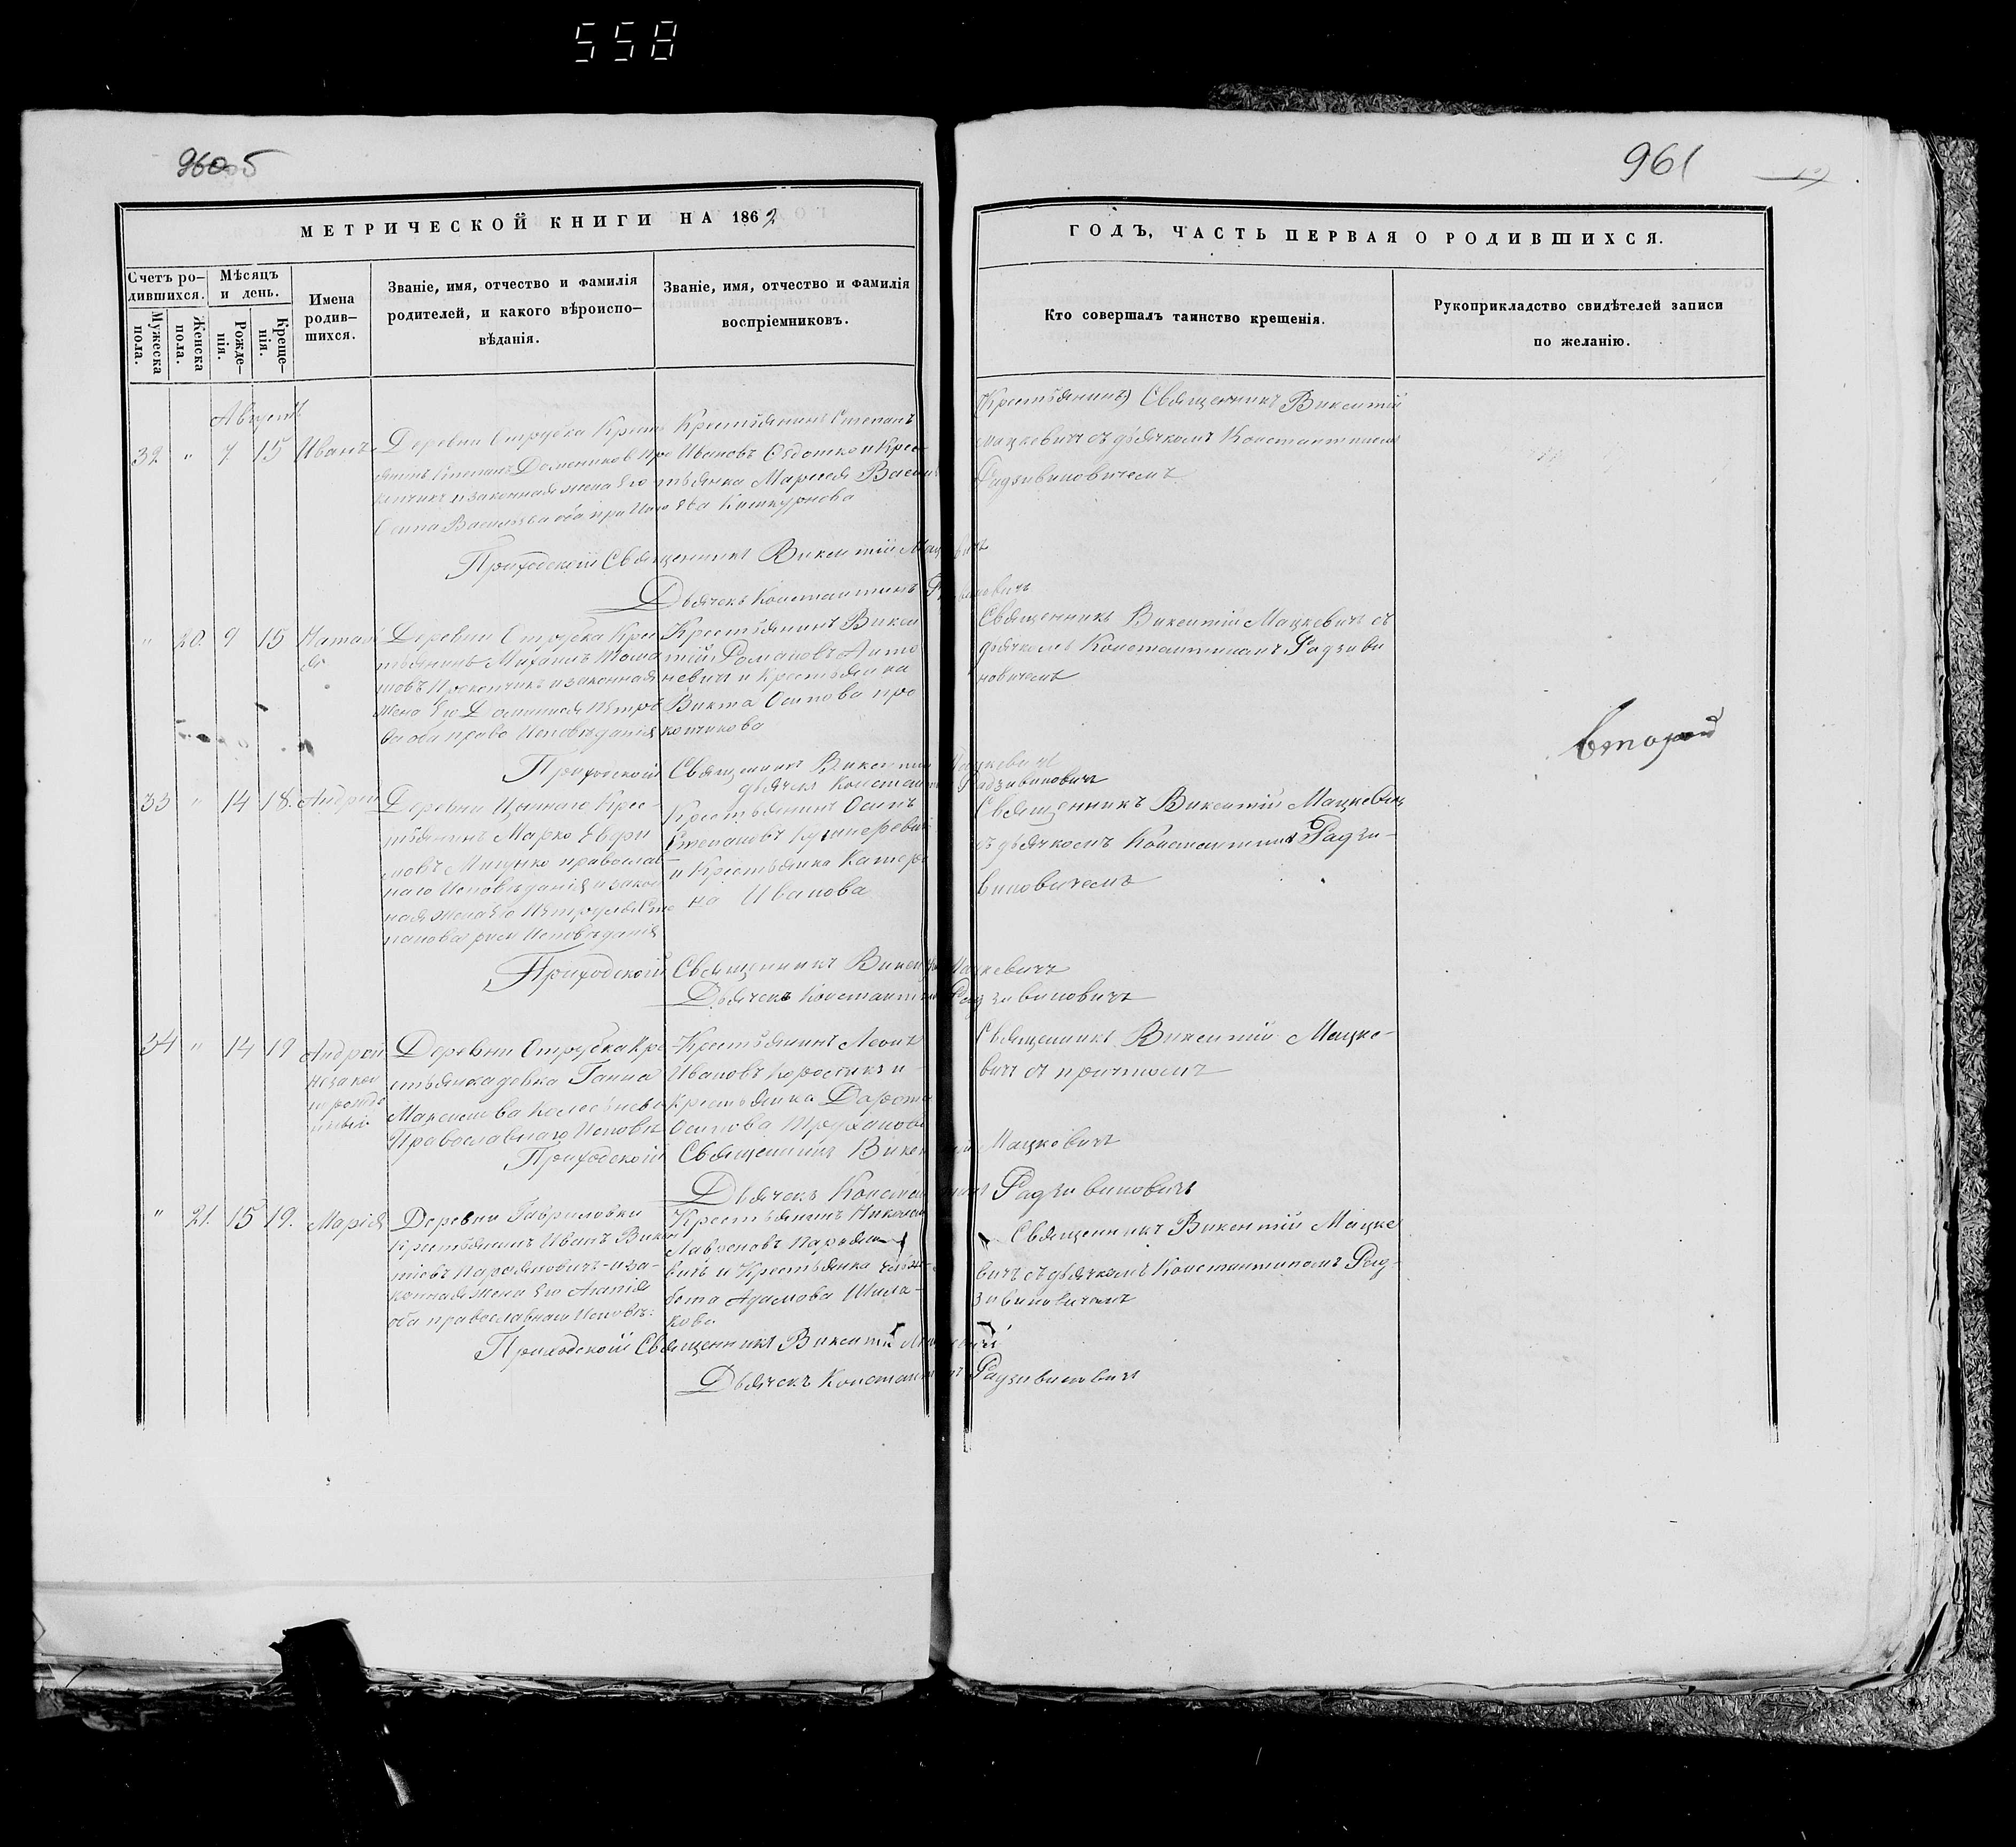 558
960 5
961
МЕТРИЧЕСКОЙ КНИГИ НА 1862
ГОДЪ, ЧАСТЬ ПЕРВАЯ О РОДИВШИХСЯ.
Счетъ ро-
дившихся.
Мужеска
пола.
Женска
пола.
Мѣсяцъ
и день.
Рожде-
нія.
Креще-
нія.
Имена
родив-
шихся.
Званіе, имя, отчество и фамилія
родителей, и какого вѣроиспо-
вѣданія.
Званіе, имя, отчество и фамилія
воспріемниковъ.
Кто совершалъ таинство крещенія.
Рукоприкладство свидѣтелей записи
по желанію.
Августъ
32 " 7 15 Иванъ
Деревни Отрубка Кресть
янинъ Степанъ Домениковъ Про
копчикъ и законная жена Его
Васильева оба
Крестьянинъ Степанъ
Ивановъ и Крес
тьянка Марися Василь
ева
Священникъ Викентій
Мацкевичъ съ дьячкомъ Константиномъ
Радзивиновичемъ
Приходскій Священникъ Викентій Мацкевичъ
Дьячекъ Константинъ Радзивиновичъ
" 20. 9 15 Наталі
я
Деревни Отрубка Крес
тьянинъ Михаилъ Тома
шовъ Прокопчикъ и законная
жена Его Петро
ва оба право Исповѣданія
Крестьянинъ Викен
тій Романовъ Анто
невичъ и Крестьянка
Викта Осипова про
копчикова
Священникъ Викентій Мацкевичъ съ
дьячкомъ Константиномъ Радзиви
новичемъ
второй
Приходскій Священникъ Викентій Мацкевичъ
дьячекъ Константинъ Радзивиновичъ
33 " 14 18. Андрей
Деревни Крес-
тьянинъ Марко
Мицунко православ-
наго Исповѣданія и закон
ная жена Его Сте
панова Исповѣданія
Крестьянинъ Осипъ
Степановъ
и Крестьянка Катери
на Иванова
Священникъ Викентій Мацкевичъ
съ дьячкомъ Константиномъ Радзи-
виновичемъ
Приходскій Священникъ Викентій Мацкевичъ
Дьячекъ Константинъ Радзивиновичъ
34 " 14 19 Андрей
незакон
норожде
нный
Деревни Отрубка Кре
стьянка девка Ганна
Максимова
Православнаго Исповѣ
Крестьянинъ Леонъ
Ивановъ и
Крестьянка
Осипова
Священникъ Викентій Мацке-
вичъ съ причтомъ
Приходскій Священникъ Викентій Мацкевичъ
Дьячекъ Константинъ Радзивиновичъ
" 21. 15 19. Марія
Деревни Гавриловки
Крестьянинъ Иванъ Викен
тіевъ и за-
конная жена Его
оба православнаго Исповѣ:
Крестьянинъ Николай
вичъ и Крестьянка
Адамова Шила-
кова
Священникъ Викентій Мацке
вичъ съ дьячкомъ Константиномъ Рад-
зивиновичемъ
Приходскій Священникъ Викентій Мацкевичъ
Дьячекъ Константинъ Радзивиновичъ